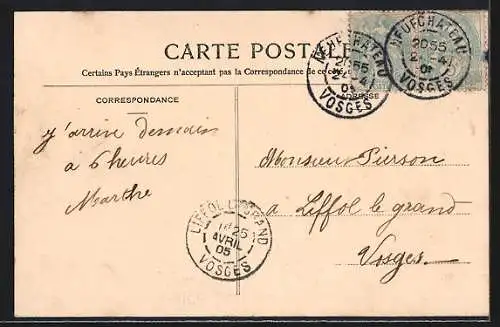 CARTE POSTALE
Certains Pays Étrangers n'acceptent pas la Correspondance de ce côté
CORRESPONDANCE
ADRESSE
NEUFCHATEAU
20 55
2 - 4
05
VOSGES
NEUFCHATEAU
20 55
2 - 4
05
VOSGES
j'arrive demain
à 6 heures
Marthe
Monsieur Pierson
à Liffol le grand
Vosges.
LIFFOL LE GRAND
25
AVRIL
05
VOSGES